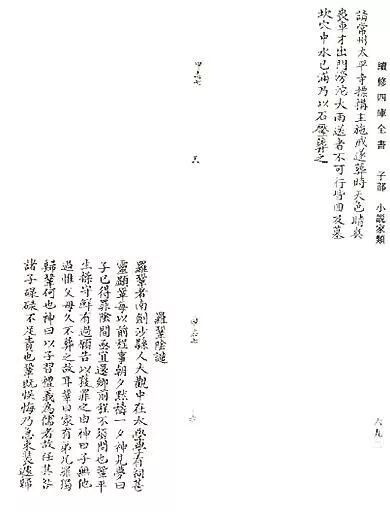 續修四庫全書 子部 小說家類
六九二
請常州太平寺標構主施戒遂葬時天色晴爽
喪車才出門滂沱大雨送者不可行皆回及墓
坎穴中水已滿乃以石壓葬之
甲志七
羅鞏陰譴
羅鞏者南劍沙縣人大觀中在太學學有祠甚
靈顯鞏每以前程事朝夕默禱一夕神見夢曰
子已得罪陰間亟宜還鄉前程不須問也鞏平
生操守鮮有過願告以獲罪之由神曰子無他
過惟父母久不葬之故耳鞏曰家有弟兄罪獨
歸鞏何也神曰以子習禮義為儒者故任其咎
諸子碌碌不足責也鞏既悞悔乃急束裝遽歸